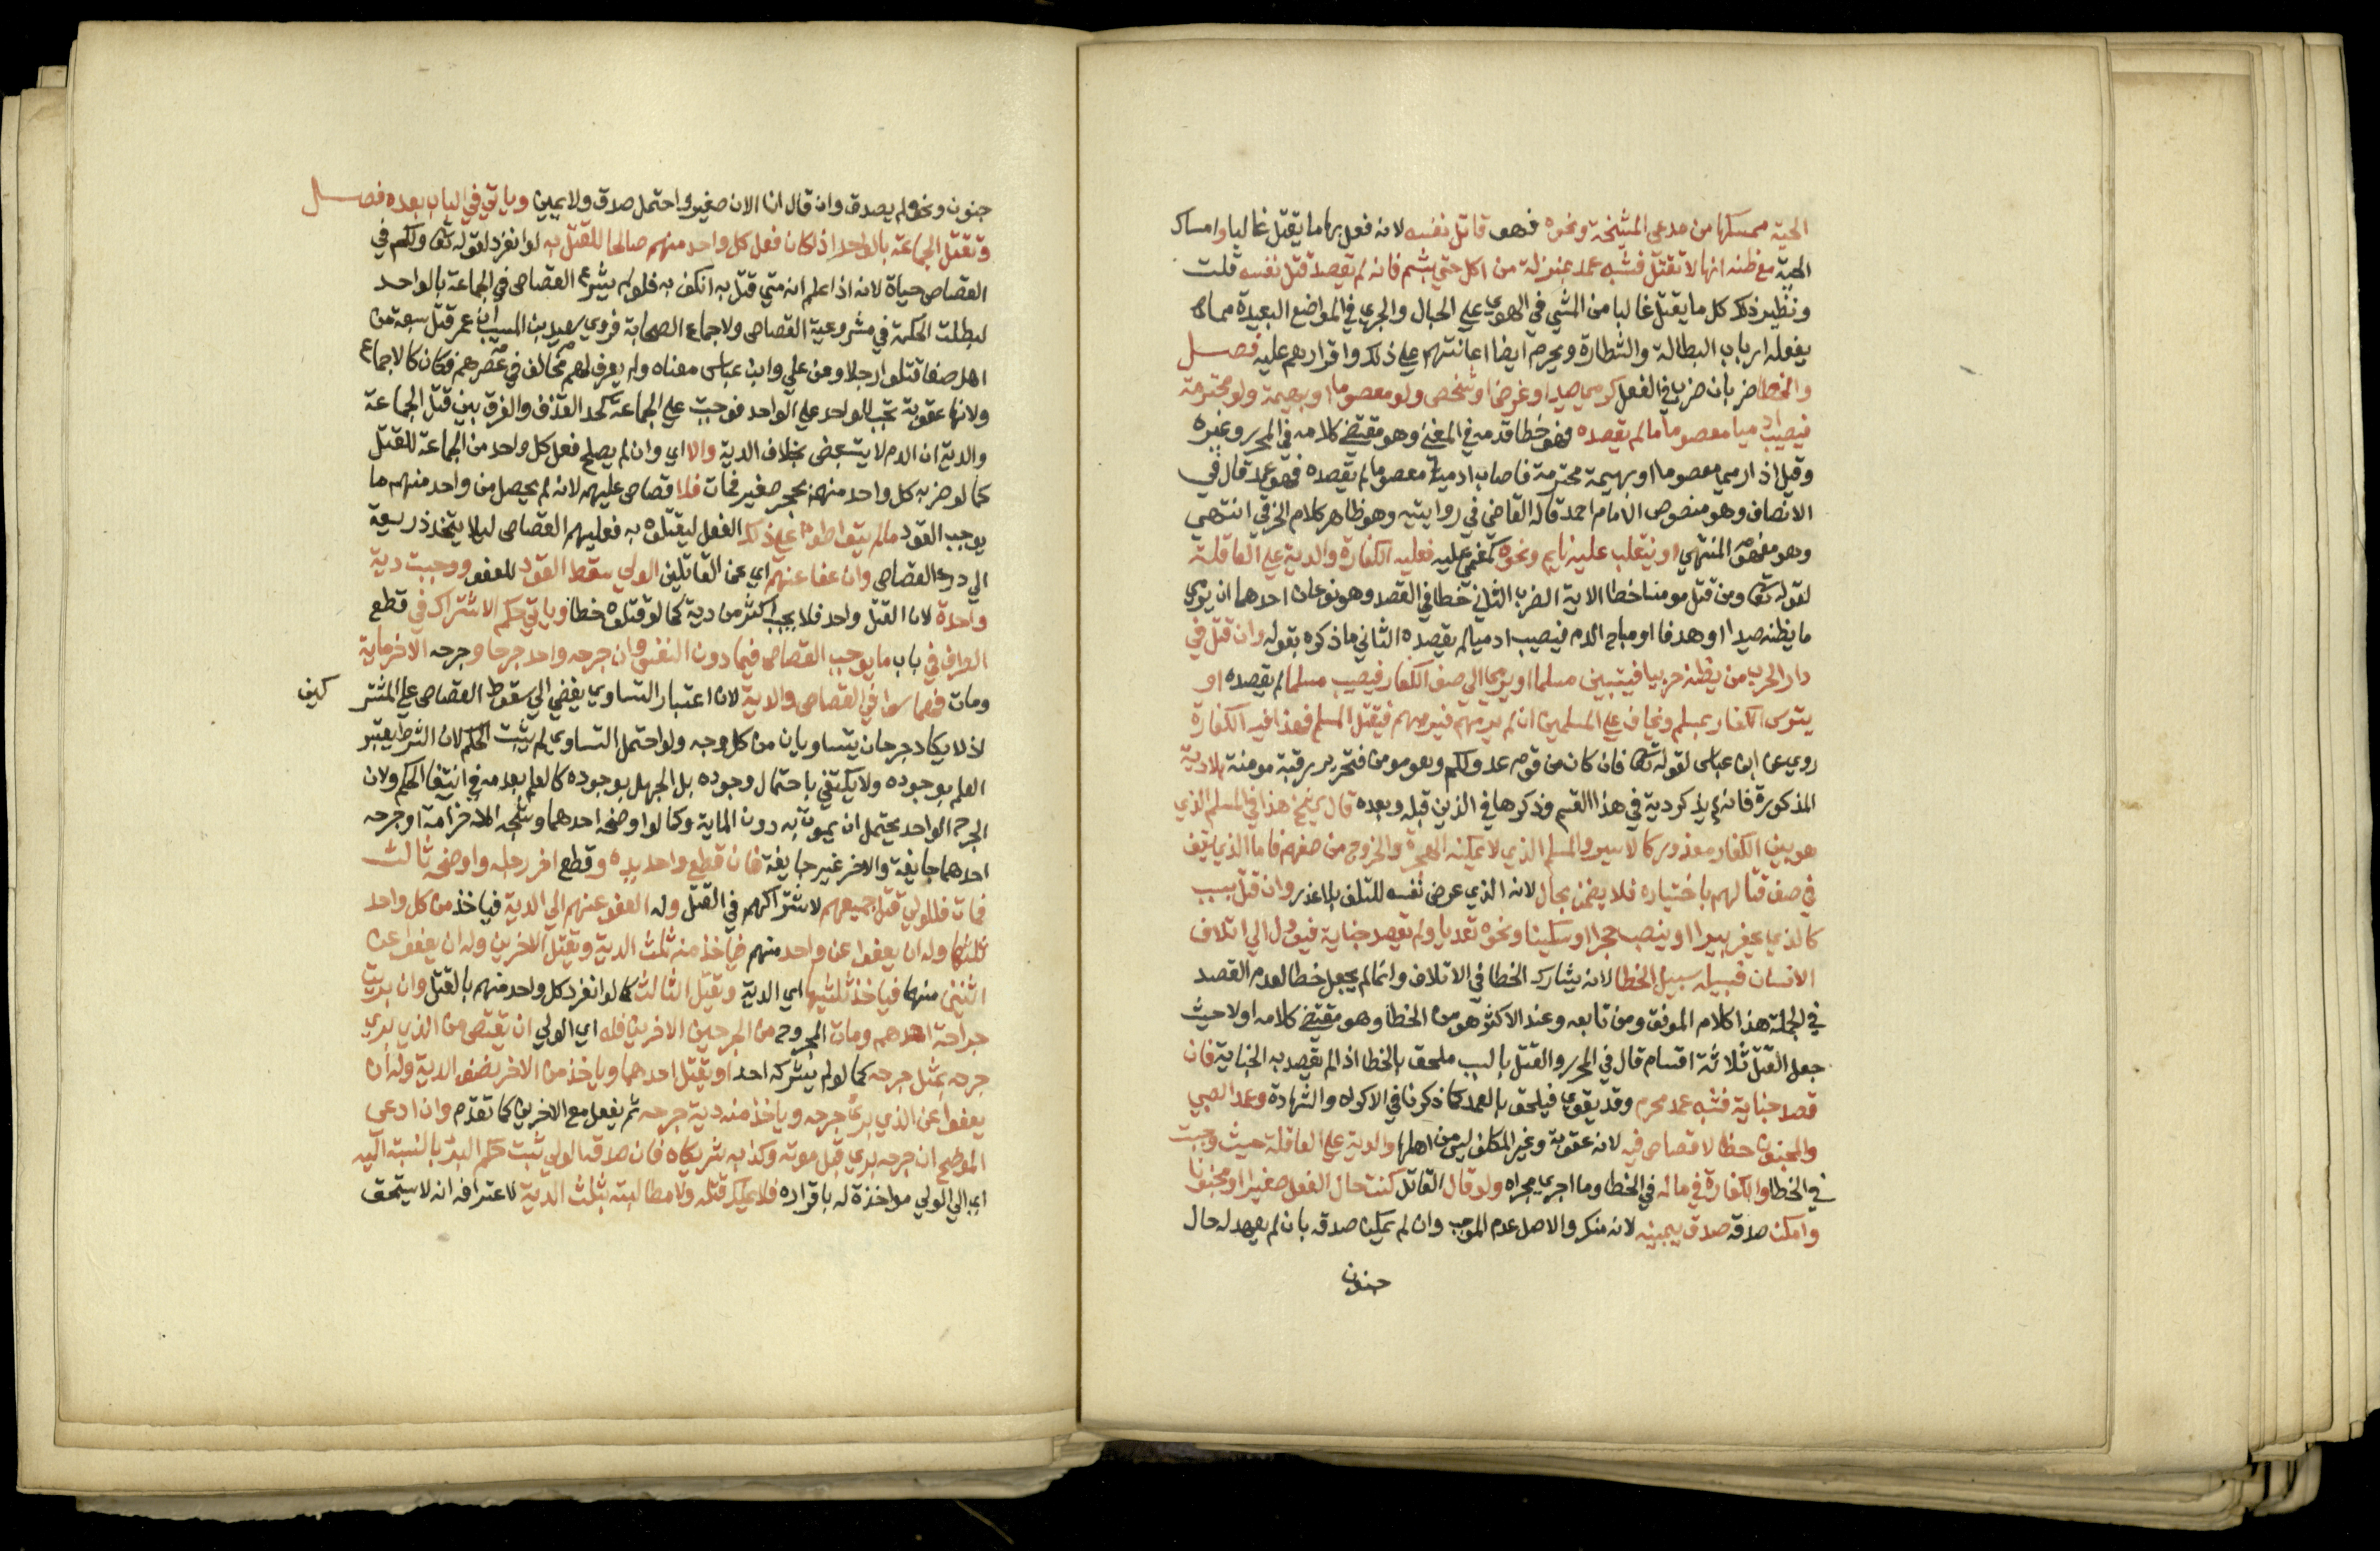 الحية ممسكها من مدعي المشيخة ونحوه فهو قاتل نفسه لانه فعل بها ما يقتل غالبا وامساك
الحية مع ظنه انها لا تقتل فشبه عمد بمنزلة من اكل حتى بشم فانه لم يقصد قتل نفسه قلت
ونظير ذلك كل ما يقتل غالبا من المشي في الهوى على الحبال والجري في المواضع البعيدة مما
يفعله ارباب البطالة والشطارة ويحرم ايضا اعانتهم على ذلك واقرارهم عليه فصل
والخطا ضربان ضرب في الفعل كرمي صيدا وغرضا وشخص ولو معصوما او بهيمة ولو محترمة
فيصيب ادميا معصوما ما لم يقصده فهو خطا قدمه في المغني وهو مقتضى كلامه في المحرر وغيره
وقيل اذا رمى معصوما او بهيمة محترمة فاصاب ادميا معصوما لم يقصده فهو عمد قال في
الانصاف وهو منصوص الامام احمد قاله القاضي في روايتيه وهو ظاهر كلام الخرقي انتهى
وهو مفهوم المنتهى او ينقلب عليه نايم ونحوه كمغمى عليه فعليه الكفارة والدية على العاقلة
لقوله تعا ومن قتل مومنا خطا الاية الضرب الثاني خطا في القصد وهو نوعان احدهما ان يرمي
ما يظنه صيدا او هدفا او مباح الدم فيصيب ادميا لم يقصده الثاني ما ذكره بقوله وان قتل في
دار الحرب من يظنه حربيا فيتبين مسلما او يرمي الى صف الكفار فيصيب مسلما لم يقصده او
يترس الكفار بمسلم ويخاف على المسلمين ان لم يرمهم فيرميهم فيقتل المسلم فهذا فيه الكفارة
روي عن ابن عباس لقوله تعا فان كان من قوم عدو لكم وهو مومن فتحرير رقبة مومنة بلا دية
المذكورة فانه لم يذكر دية في هذا القسم وذكرها في الذين قبله وبعده قال الشيخ هذا في المسلم الذي
هو بين الكفار معذور كالاسير والمسلم الذي لا يمكنه الهجرة والخروج من صفهم فاما الذي يقف
في صف قتالهم باختياره فلا يضمن بحال لانه الذي عرض نفسه للتلف بلا عذر وان قتل بسبب
كالذي يحفر بيرا او ينصب حجرا او سكينا ونحوه تعديا ولم يقصد جناية فيؤول الى اتلاف
الانسان فسبيله سبيل الخطا لانه يشارك الخطا في الاتلاف وانما لم يجعل خطا لعدم القصد
في الجملة هذا كلام الموفق ومن تابعه وعند الاكثر هو من الخطا وهو مقتضى كلامه اولا حيث
جعل القتل ثلاثة اقسام قال في المحرر والقتل بالسبب ملحق بالخطا اذا لم يقصد به الجناية فان
قصد جناية فشبه عمد محرم وقد يقوى فيلحق بالعمد كما ذكرنا في الاكراه والشهادة وعمد الصبي
والمجنون خطا لا قصاص فيه لانه عقوبة وغير المكلف ليس من اهلها والدية على العاقلة حيث وجبت
في الخطا والكفارة في ماله في الخطا وما اجري مجراه ولو قال القاتل كنت حال الفعل صغيرا او مجنونا
وامكن صدقه صدق بيمينه لانه منكر والاصل عدم الموجب وان لم يمكن صدقه بان لم يعهد له حال
جنون
جنون ونحوه لم يصدق وان قال انا الان صغير واحتمل صدق ولا يمين وياتي في الباب بعده فصل
وتقتل الجماعة بالواحد اذا كان فعل كل واحد منهم صالحا للقتل به لو انفرد لقوله تعا ولكم في
القصاص حياة لانه اذا علم انه متى قتل به انكف به فلو لم يشرع القصاص في الجماعة بالواحد
لبطلت الحكمة في مشروعية القصاص ولاجماع الصحابة فروى سعيد بن المسيب ان عمر قتل سبعة من
اهل صنعا قتلوا رجلا وعن علي وابن عباس معناه ولم يعرف لهم مخالف في عصرهم فكان كالاجماع
ولانها عقوبة تجب للواحد على الواحد فوجبت على الجماعة كحد القذف والفرق بين قتل الجماعة
والدية ان الدم لا يتبعض بخلاف الدية والا اي وان لم يصلح فعل كل واحد من الجماعة للقتل
كما لو ضربه كل واحد منهم بحجر صغير فمات فلا قصاص عليهم لانه لم يحصل من واحد منهم ما
يوجب القود ما لم يتواطوا على ذلك الفعل ليقتلوه به فعليهم القصاص ليلا يتخذ ذريعة
الى درء القصاص وان عفا عنهم اي عن القاتلين الولي سقط القود للعفو ووجبت دية
واحدة لان القتل واحد فلا يجب اكثر من دية كما لو قتلوه خطا وياتي حكم الاشتراك في قطع
الطرف في باب ما يوجب القصاص فيما دون النفس وان جرحه واحد جرحا وجرحه الاخر ماية
ومات فهما سوا في القصاص والدية لان اعتبار التساوي يفضي الى سقوط القصاص على المشتر كين
اذ لا يكاد جرحان يتساويان من كل وجه ولو احتمل التساوي لم يثبت الحكم لان الشرط يعتبر
العلم بوجوده ولا يكتفى باحتمال وجوده بل الجهل بوجوده كالعلم بعدمه في انتفا الحكم ولان
الجرح الواحد يحتمل ان يموت به دون الماية وكما لو اوضحه احدهما وشجه الاخر امة او جرحه
احدهما جايفة والاخر غير جايفة فان قطع واحد يده وقطع اخر رجله واوضحه ثالث
فمات فللولي قتل جميعهم لاشتراكهم في القتل وله العفو عنهم الى الدية فياخذ من كل واحد
ثلثها وله ان يعفوا عن واحد منهم فياخذ منه ثلث الدية ويقتل الاخرين وله ان يعفوا عن
اثنين منهما فياخذ ثلثيها اي الدية ويقتل الثالث كما لو انفرد كل واحد منهم بالقتل وان بريت
جراحة احدهم ومات المجروح من الجرحين الاخرين فله اي الولي ان يقتص من الذي بري
جرحه بمثل جرحه كما لو لم يشركه احد او يقتل احدهما وياخذ من الاخر نصف الدية وله ان
يعفوا عن الذي بري جرحه وياخذ منه دية جرحه ثم يفعل مع الاخرين كما تقدم وان ادعى
الموضح ان جرحه بري قبل موته وكذبه شريكاه فان صدقه الولي ثبت حكم البرء بالنسبة اليه
اي الى الولي مواخذة له باقراره فلا يملك قتله ولا مطالبته بثلث الدية لاعترافه انه لا يستحق